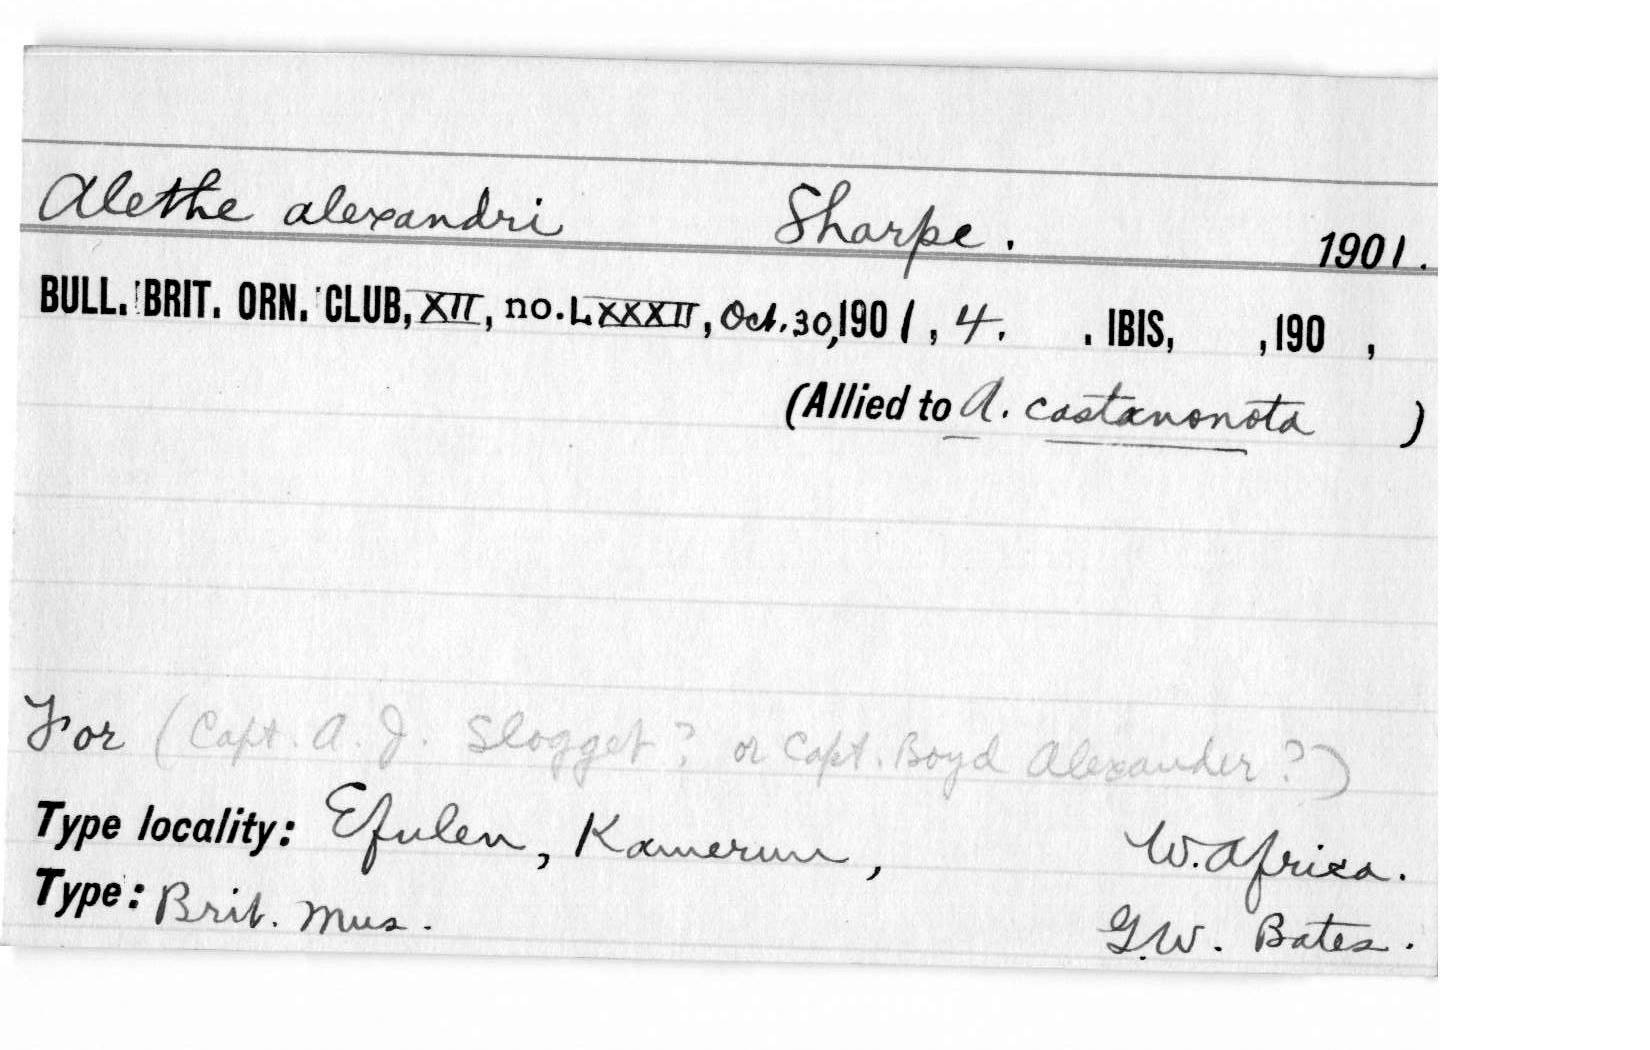 Alethe alexandri Sharpe. 1901.
BULL. BRIT. ORN. CLUB, XII, no. LXXXII, Oct. 30, 1901, 4. . IBIS, ,190 ,
(Allied to A. castanonota )
For (Capt. A. J. Slogget? or Capt. Boyd Alexander?)
Type locality: Efulen, Kamerun, W. Africa.
Type: Brit. Mus. G.W. Bates.